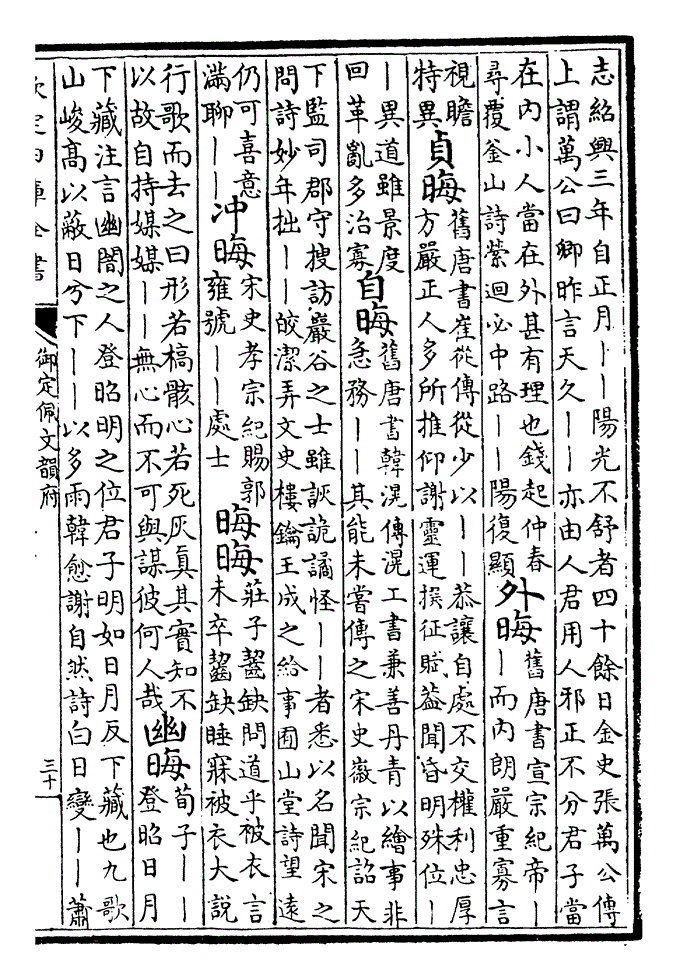 志紹興三年自正月丨丨陽光不舒者四十餘日金史張萬公傳
上謂萬公曰卿昨言天久丨丨亦由人君用人邪正不分君子當
在内小人當在外甚有理也錢起仲春
尋覆釜山詩縈迴必中路丨丨陽復顯
外晦
舊唐書宣宗紀帝丨
丨而内朗嚴重寡言
視瞻
特異
貞晦
舊唐書崔從傳從少以丨丨恭讓自處不交權利忠厚
方嚴正人多所推仰謝靈運撰征賦葢聞昏明殊位丨
丨異道雖景度
回革亂多治寡
自晦
舊唐書韓滉傳滉工書兼善丹青以繪事非
急務丨丨其能未嘗傳之宋史徽宗紀詔天
下監司郡守搜訪巖谷之士雖詼詭譎怪丨丨者悉以名聞宋之
問詩妙年拙丨丨皎潔弄文史樓鑰王成之給事囿山堂詩望遠
仍可喜意
滿聊丨丨
冲晦
宋史孝宗紀賜郭
雍號丨丨處士
晦晦
莊子齧缺問道乎被衣言
未卒齧缺睡寐被衣大說
行歌而去之曰形若槁骸心若死灰真其實知不
以故自持媒媒丨丨無心而不可與謀彼何人哉
幽晦
荀子丨丨
登昭日月
下藏注言幽闇之人登昭明之位君子明如日月反下藏也九歌
山峻髙以蔽日兮下丨丨以多雨韓愈謝自然詩白日變丨丨蕭
欽定四庫全書
御定佩文韻府
三十